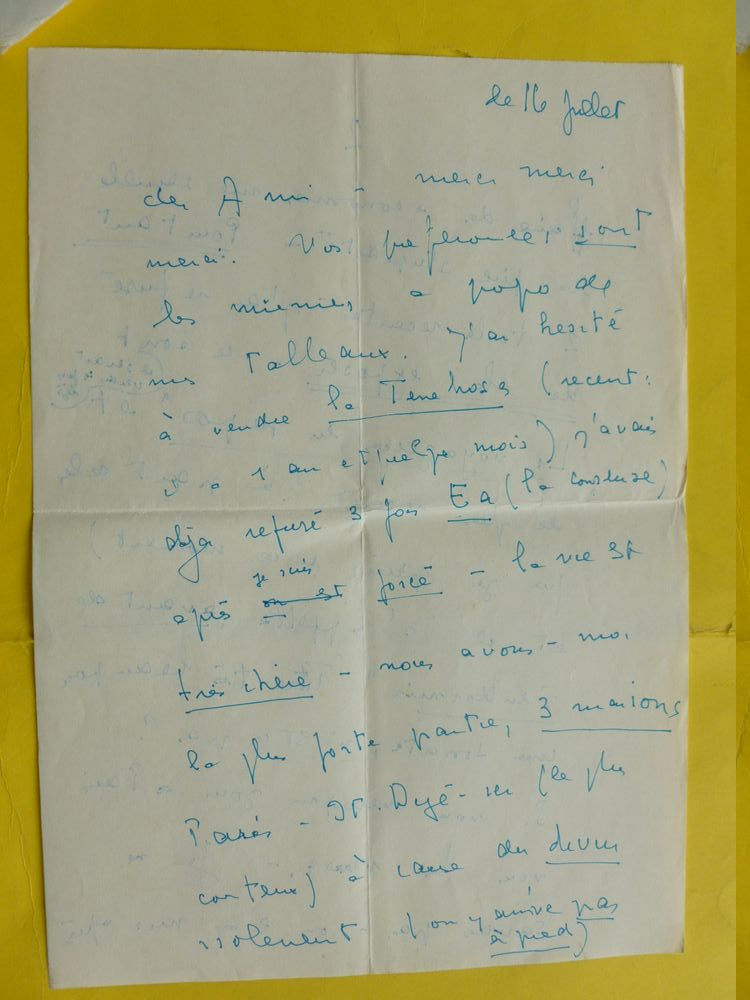 le 16 juillet
cher Ami - merci merci
merci. Vos préférences sont
les miennes a popo de
mes Tableaux. J'ai hesité
à vendre la (recent:
il y a 1 an et quelque mois) j'avais
déja refusé 3 fois Ea (la
après je suis on est forcé - la vie est
très chère - nous avons - moi
la plus forte partie, 3 maisons
Paris - St. (le plus
couteux) à cause du
isolement (on y arrive pas
à pied)